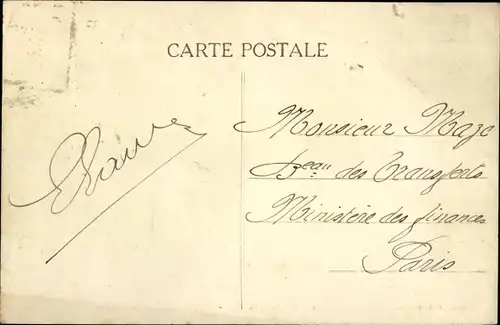 CARTE POSTALE
Monsieur Maze
Beau des Transferts
Ministère des finances
Paris